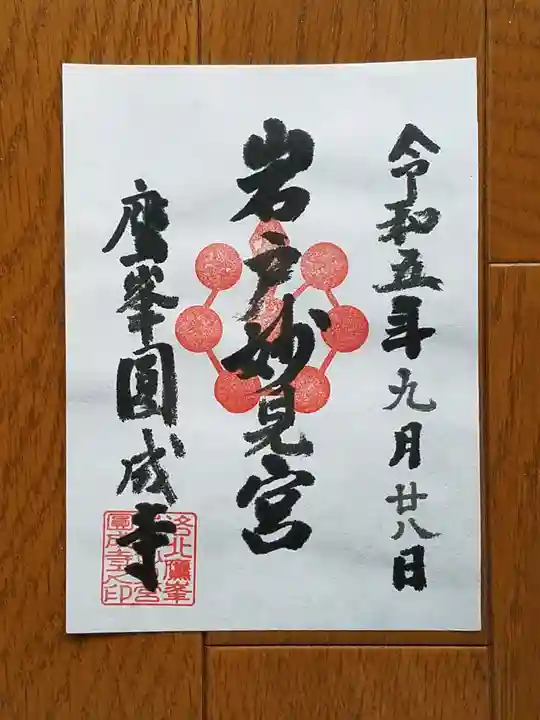 令和五年九月廿八日
岩戸妙見宮
鷹峯圓成寺
洛北鷹峯
圓成寺之印